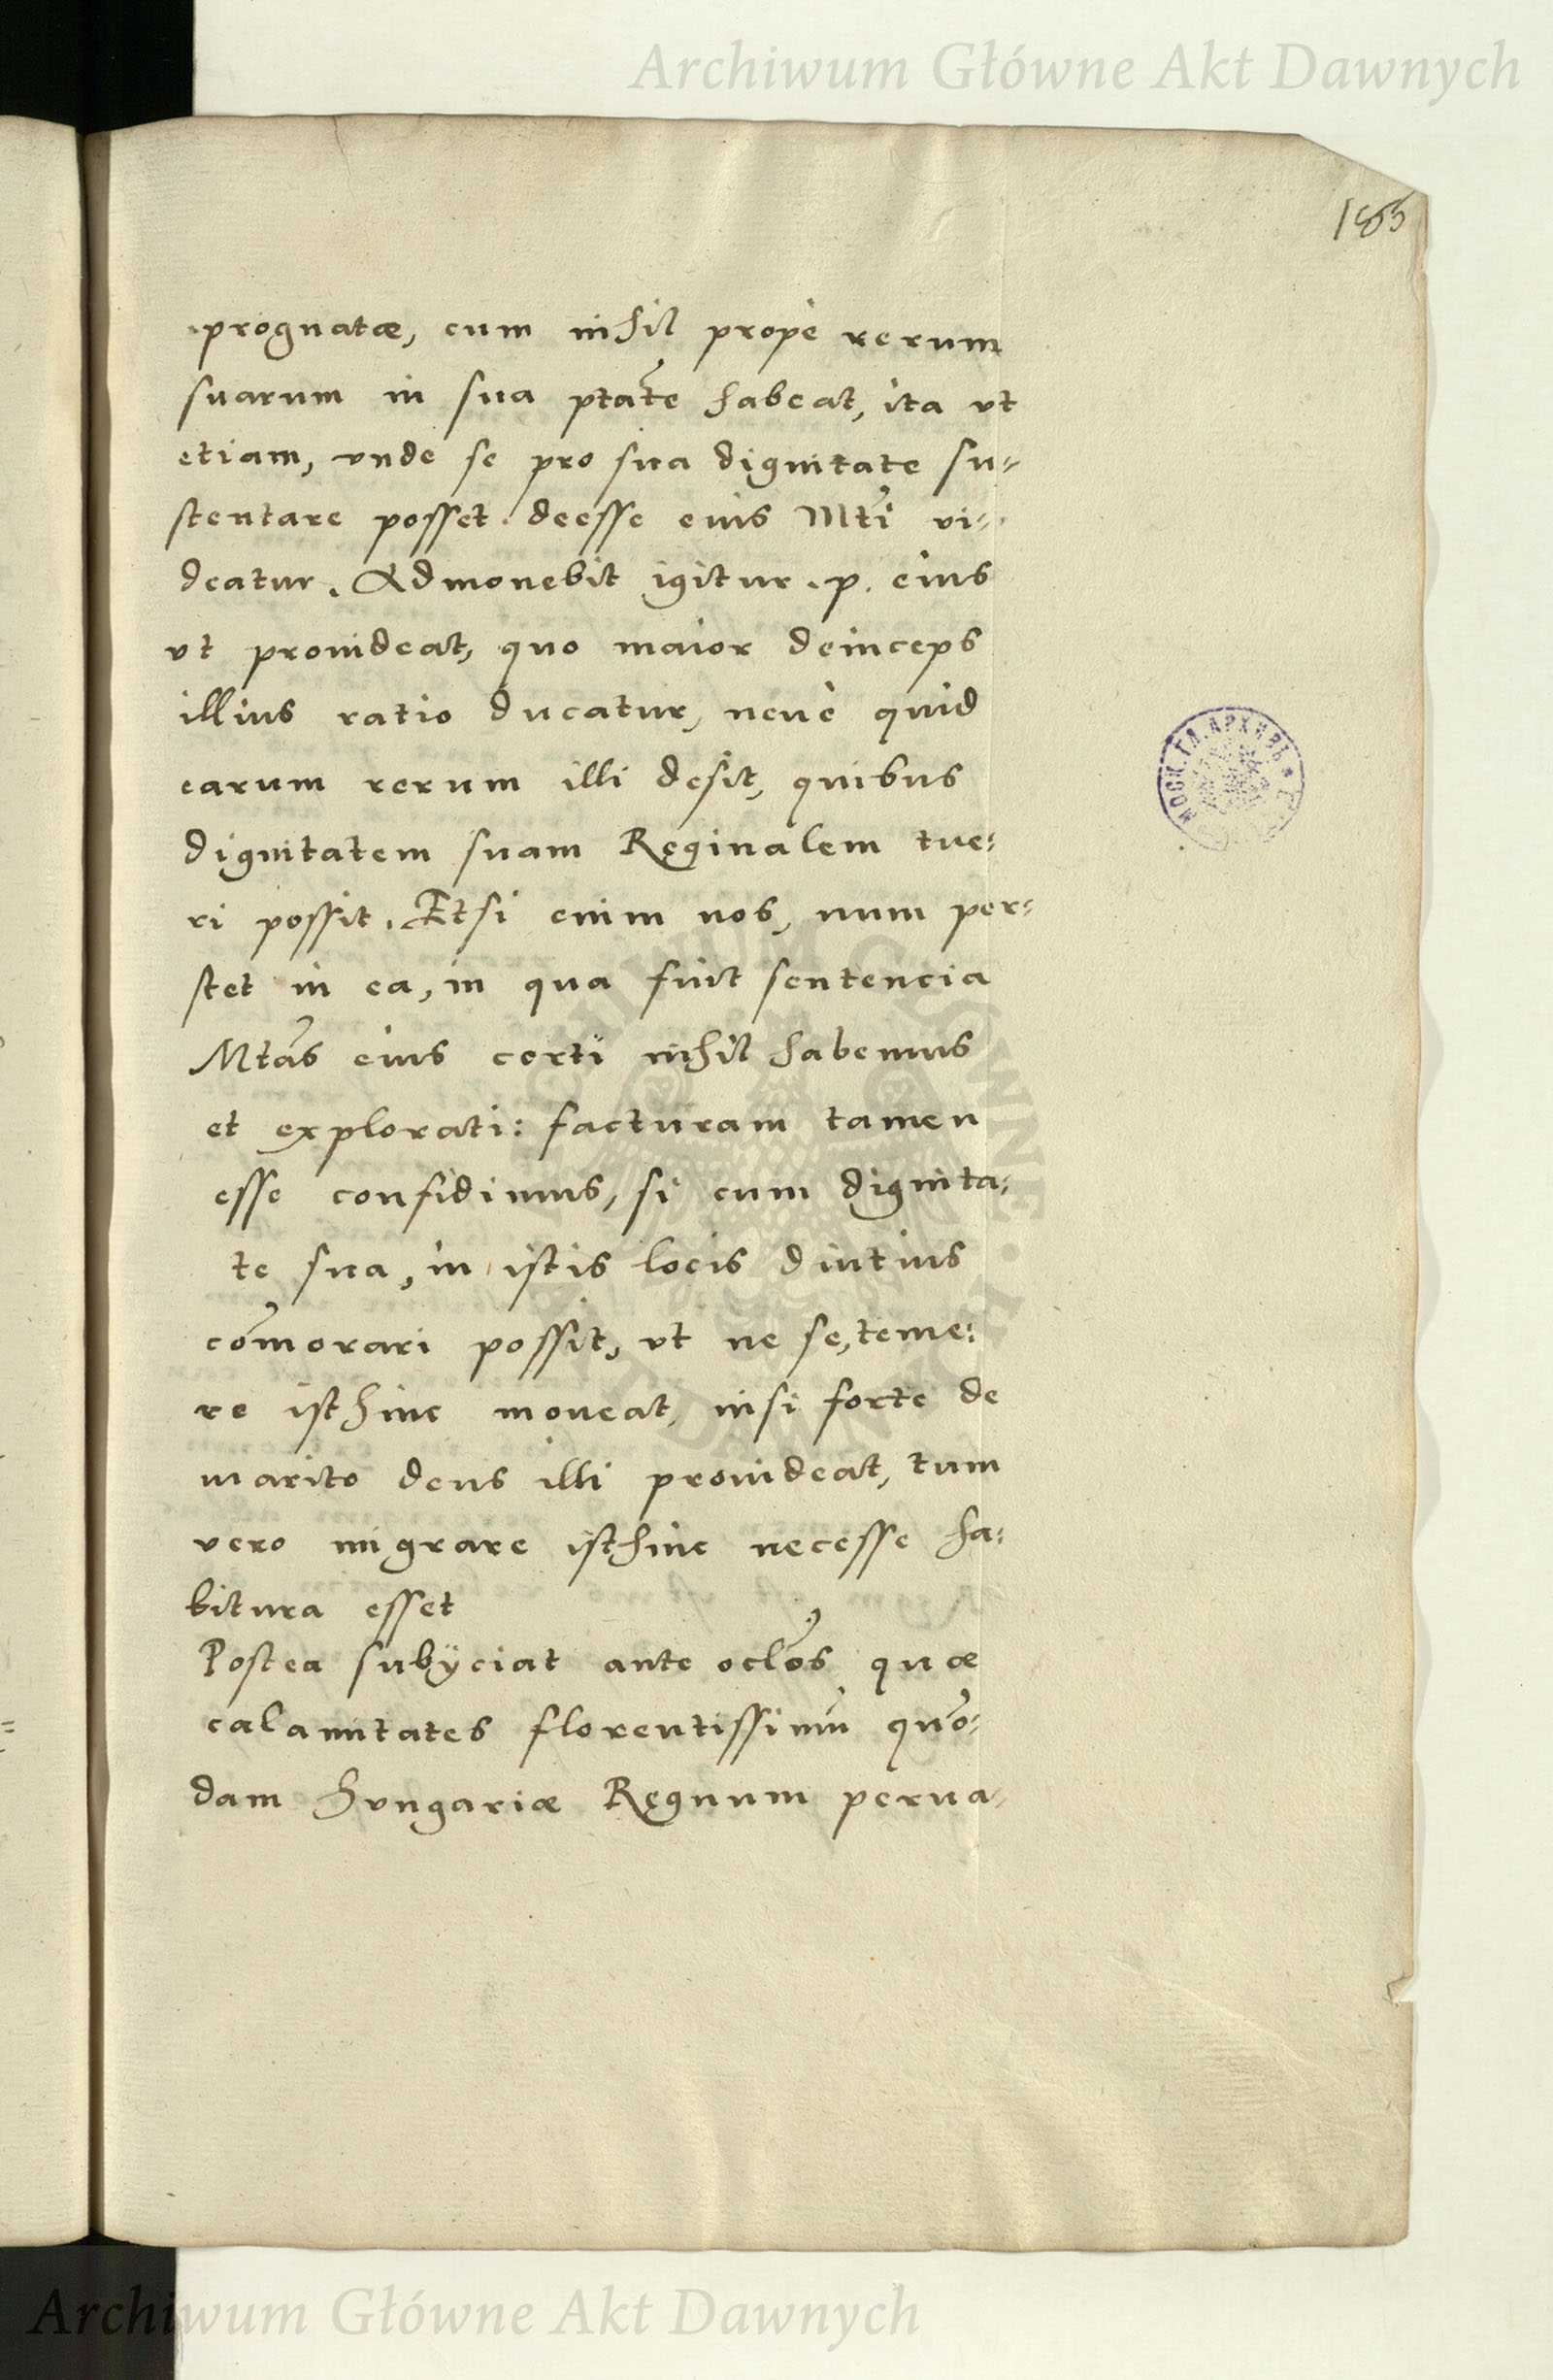 Archiwum Główne Akt Dawnych
prognatæ, cum nihil propè rerum
suarum in sua ptãte habeat, ita vt
etiam, vnde se pro sua dignitate su-
stentare posset deesse eius Mti vi-
deatur. Admonebit igitur .p. eius
vt prouideat, quo maior deinceps
illius ratio ducatur, neuè quid
earum rerum illi desit, quibus
dignitatem suam Reginalem tue:
ri possit. Etsi enim nos, num per-
stet in ea, in qua fuit sentencia
Mtãs eius certi nihil habemus
et explorati: facturam tamen
esse confidimus, si cum dignita:
te sua, in istis locis diutius
cõmorari possit, vt ne se, teme:
re isthinc moueat, nisi forte de
marito deus illi prouideat, tum
vero migrare isthinc necesse ha:
bitura esset
Postea subÿciat ante oclõs quæ
calamitates florentissimũ quõ-
dam Hungariæ Regnum perua-
МОСК. ГЛ. АРХИВЪ
ARCHIWUM GŁÓWNE AKT DAWNYCH
Archiwum Główne Akt Dawnych